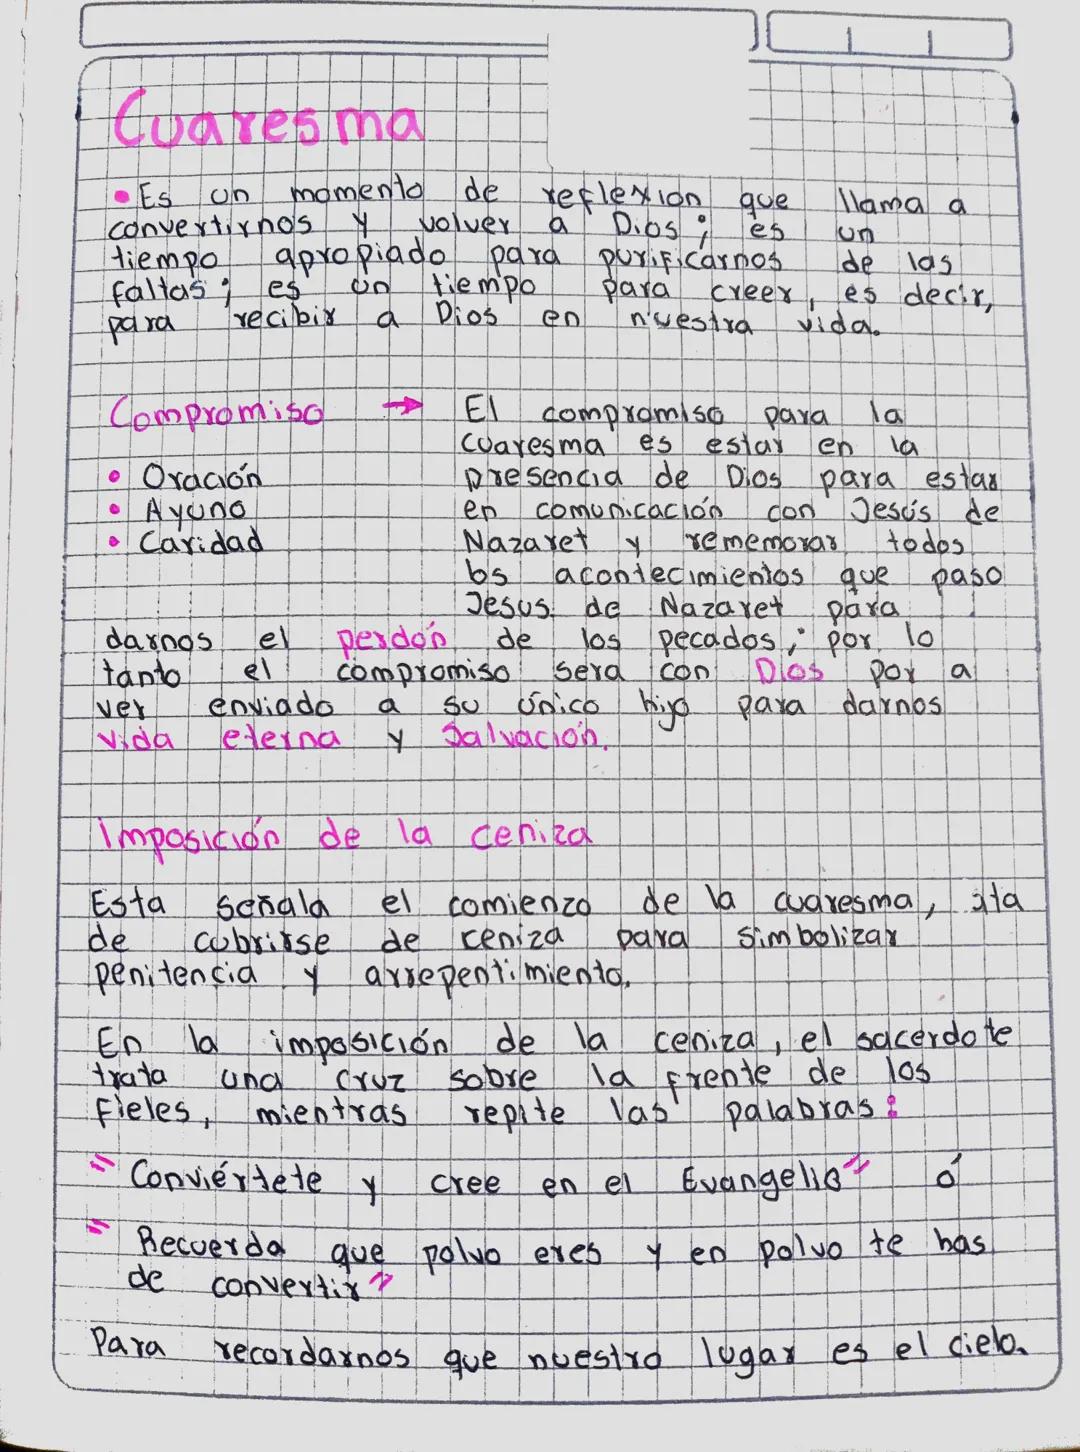 Cuaresma
• Es un momento de reflexion que llama a
convertirnos y volver a Dios; es un
tiempo apropiado para purificarnos de las
faltas; es un tiempo para creer, es decir,
para recibir a Dios en nuestra vida.
Compromiso → El compromiso para la
cuaresma es estar en la
• Oración presencia de Dios para estar
• Ayuno en comunicación con Jesús de
• Caridad Nazaret y rememorar todos
los acontecimientos que paso
Jesus de Nazaret para
darnos el perdón de los pecados; por lo
tanto el compromiso sera con Dios por a
ver enviado a su único hijo para darnos
vida eterna y Salvación.
Imposición de la ceniza
Esta señala el comienzo de la cuaresma,
de cubrirse de ceniza para simbolizar
penitencia y arrepentimiento.
En la imposición de la ceniza, el sacerdote
trata una cruz sobre la frente de los
fieles, mientras repite las palabras:
"Conviértete y cree en el Evangelio" ó
"Recuerda que polvo eres y en polvo te has
de convertir"
Para recordarnos que nuestro lugar es el cielo.